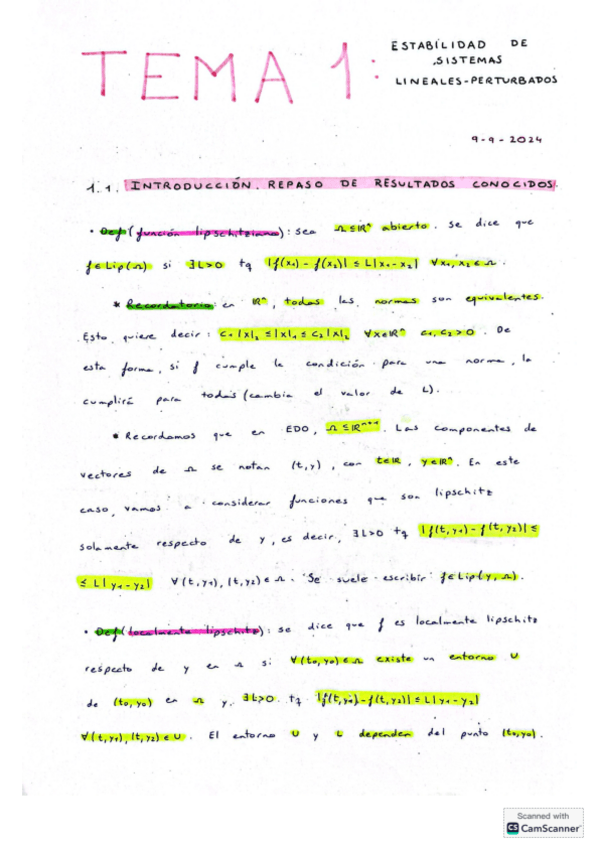 TEMA 1:
ESTABILIDAD DE
SISTEMAS
LINEALES-PERTURBADOS
9-9-2024
1.1. INTRODUCCIÓN. REPASO DE RESULTADOS CONOCIDOS.
• Def (función lipschitziana): sea Ω⊆ℝⁿ abierto. Se dice que
f∈Lip(Ω) si ∃L>0 tq |f(x₁)-f(x₂)| ≤ L|x₁-x₂| ∀x₁,x₂∈Ω.
* Recordatorio: en ℝⁿ, todas las normas son equivalentes.
Esto quiere decir: c₁|x|₂ ≤ |x|₁ ≤ c₂|x|₂ ∀x∈ℝⁿ c₁,c₂>0. De
esta forma, si f cumple la condición para una norma, la
cumplirá para todas (cambia el valor de L).
* Recordamos que en EDO, Ω⊆ℝⁿ⁺¹. Las componentes de
vectores de Ω se notan (t,y), con t∈ℝ, y∈ℝⁿ. En este
caso, vamos a considerar funciones que son lipschitz
solamente respecto de y, es decir, ∃L>0 tq |f(t,y₁)-f(t,y₂)| ≤
≤ L|y₁-y₂| ∀(t,y₁),(t,y₂)∈Ω. Se suele escribir f∈Lip(y,Ω).
• Def (localmente lipschitz): se dice que f es localmente lipschitz
respecto de y en Ω si ∀(t₀,y₀)∈Ω existe un entorno U
de (t₀,y₀) en Ω y ∃L>0 tq |f(t,y₁)-f(t,y₂)| ≤ L|y₁-y₂|
∀(t,y₁),(t,y₂)∈U. El entorno U y L dependen del punto (t₀,y₀).
Scanned with
CS CamScanner